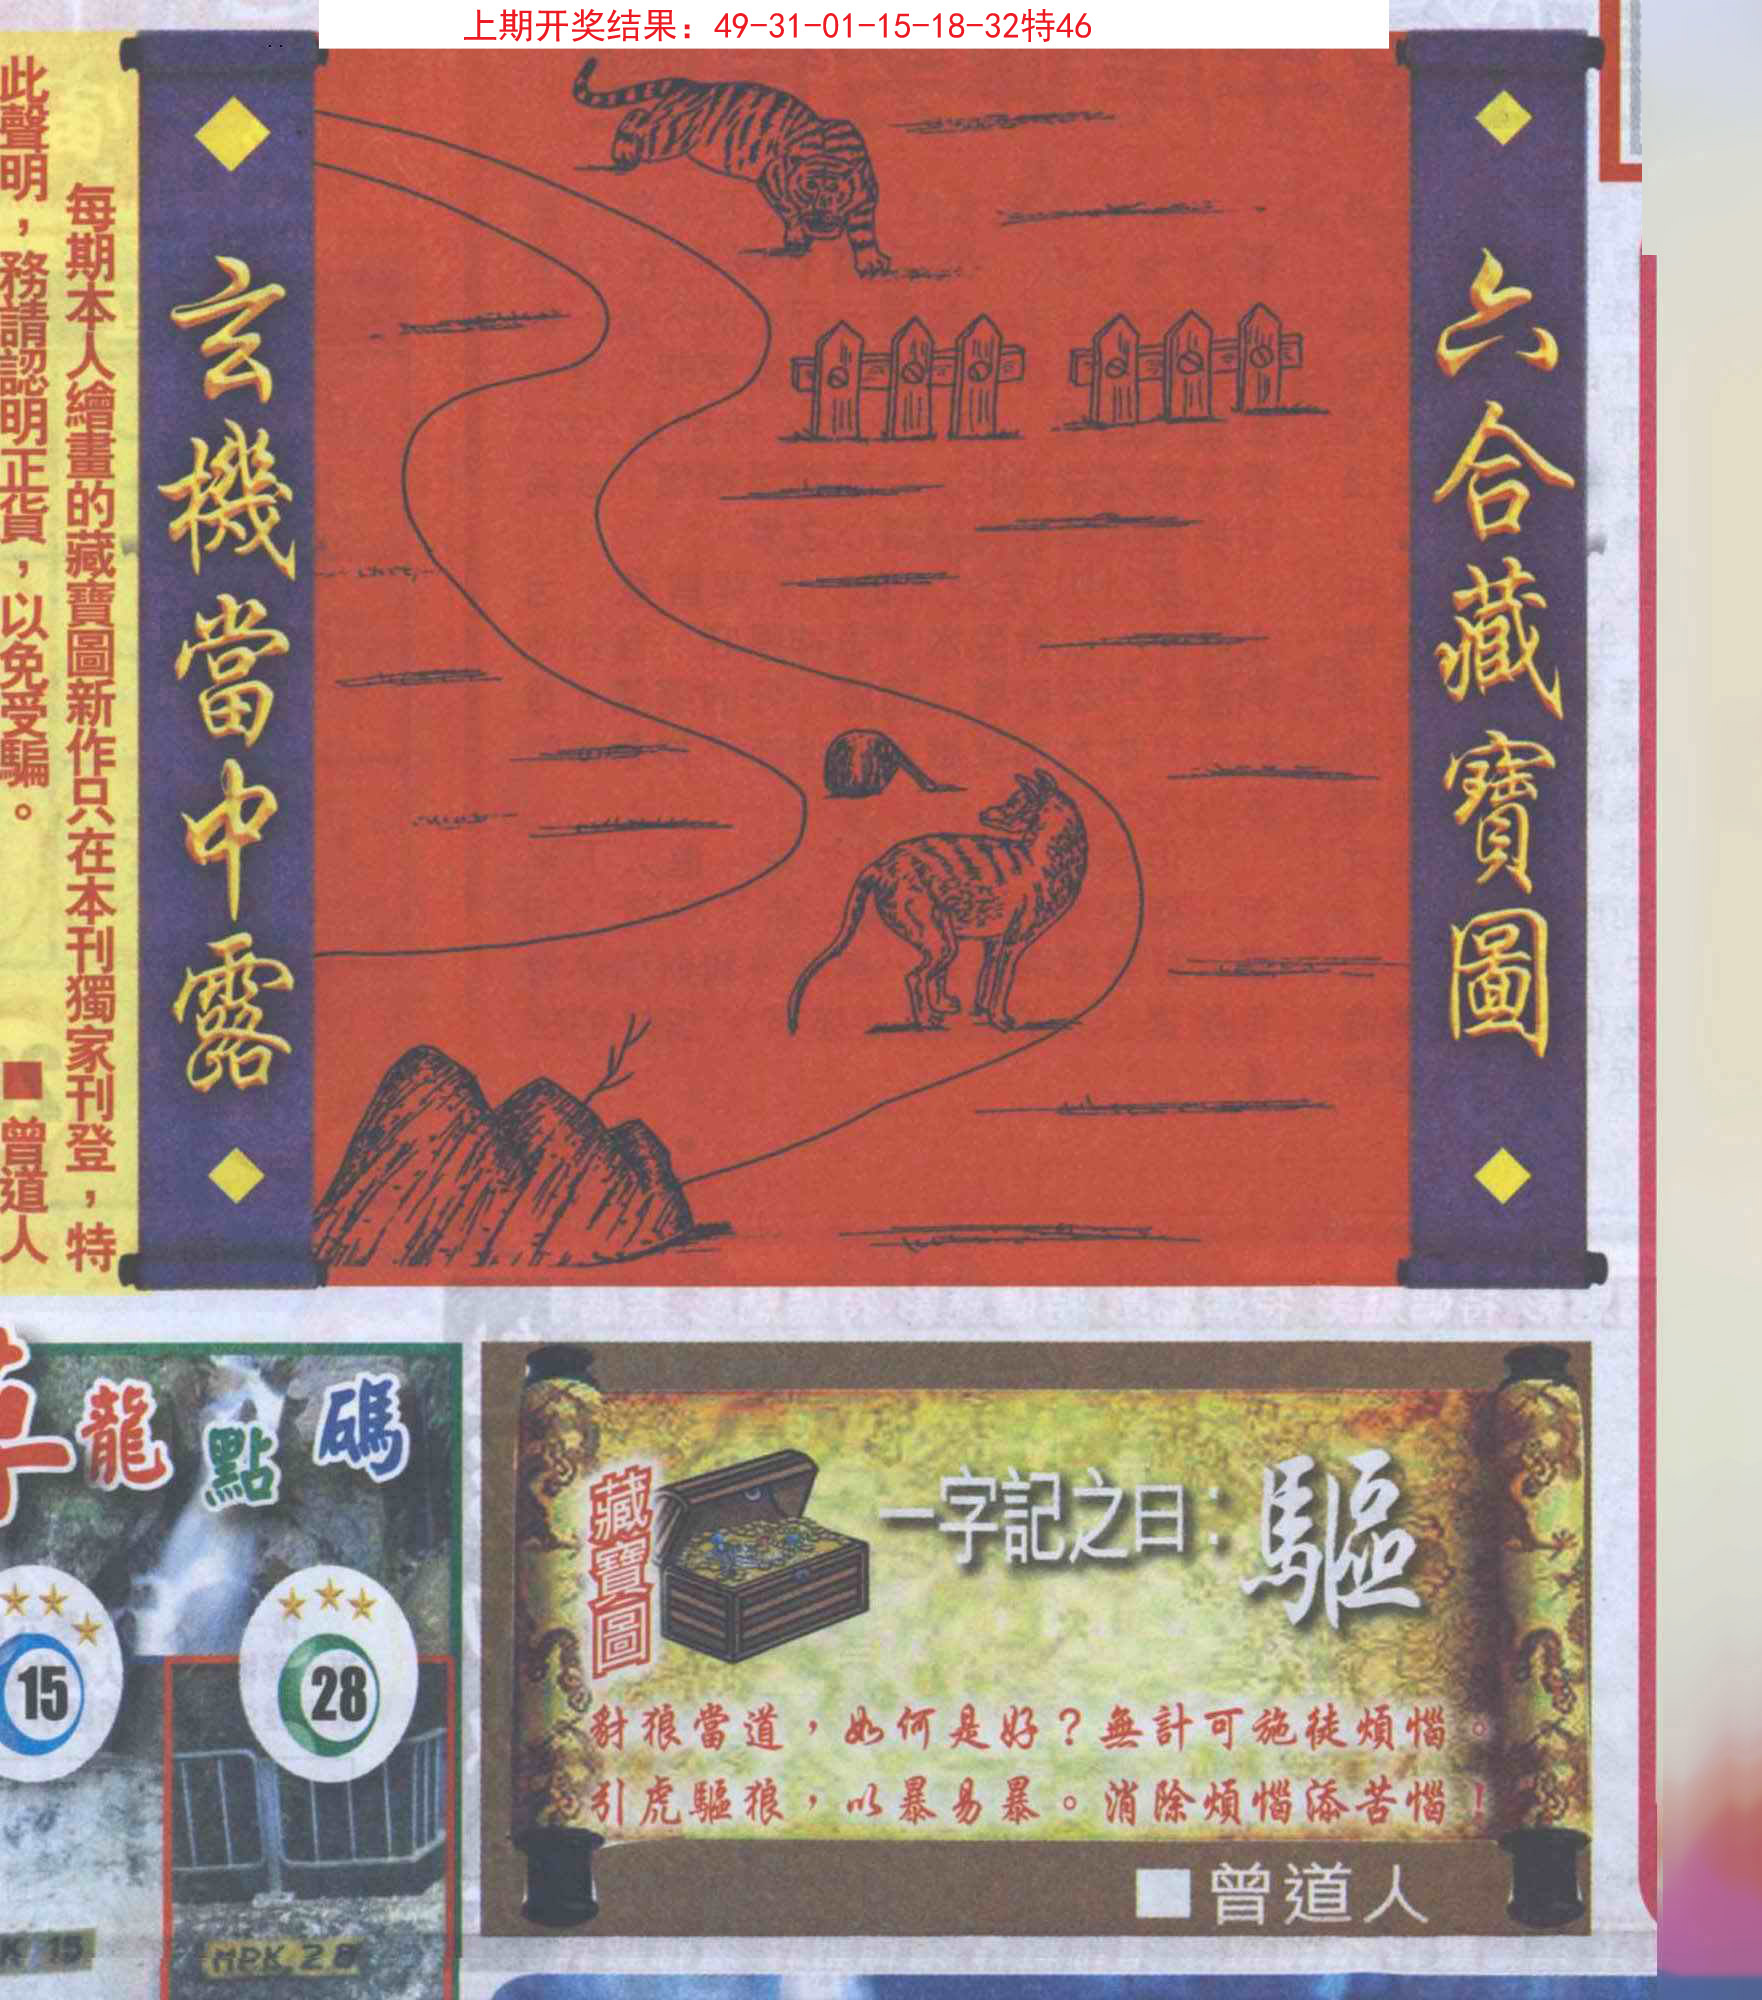 上期开奖结果：49-31-01-15-18-32特46
六合藏寶圖
玄機當中露
每期本人繪畫的藏寶圖新作只在本刊獨家刊登，特
此聲明，務請認明正貨，以免受騙。
■曾道人
龍點碼
15
28
15
MPK 28
藏寶圖
一字記之曰：驅
豺狼當道，如何是好？無計可施徒煩惱。
引虎驅狼，以暴易暴。消除煩惱添苦惱！
■曾道人